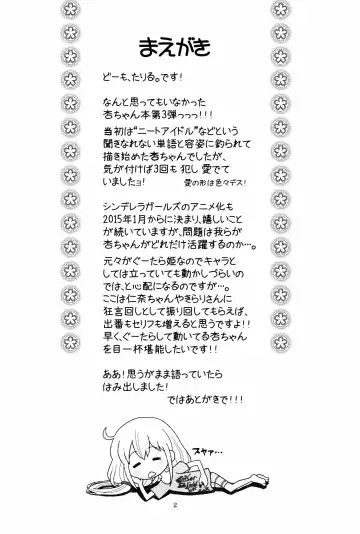 まえがき
どーも、たりる。です!
なんと思ってもいなかった
杏ちゃん本第3弾っっっ!!!
当初は"ニートアイドル"などという
聞きなれない単語と容姿に釣られて
描き始めた杏ちゃんでしたが、
気が付けば3回も 犯し 愛でて
いましたョ! 愛の形は色々デス!
シンデレラガールズのアニメ化も
2015年1月からに決まり、嬉しいこと
が続いていますが、問題は我らが
杏ちゃんがどれだけ活躍するのか…。
元々がぐーたら姫なのでキャラと
しては立っていても動かしづらいの
では、と心配になるのですが…。
ここは仁奈ちゃんやきらりさんに
狂言回しとして振り回してもらえば、
出番もセリフも増えると思うですよ!!
早く、ぐーたらして動いてる杏ちゃん
を目一杯堪能したいです!!
ああ!思うがまま語っていたら
はみ出しました!
ではあとがきで!!!
スヤァ…
2